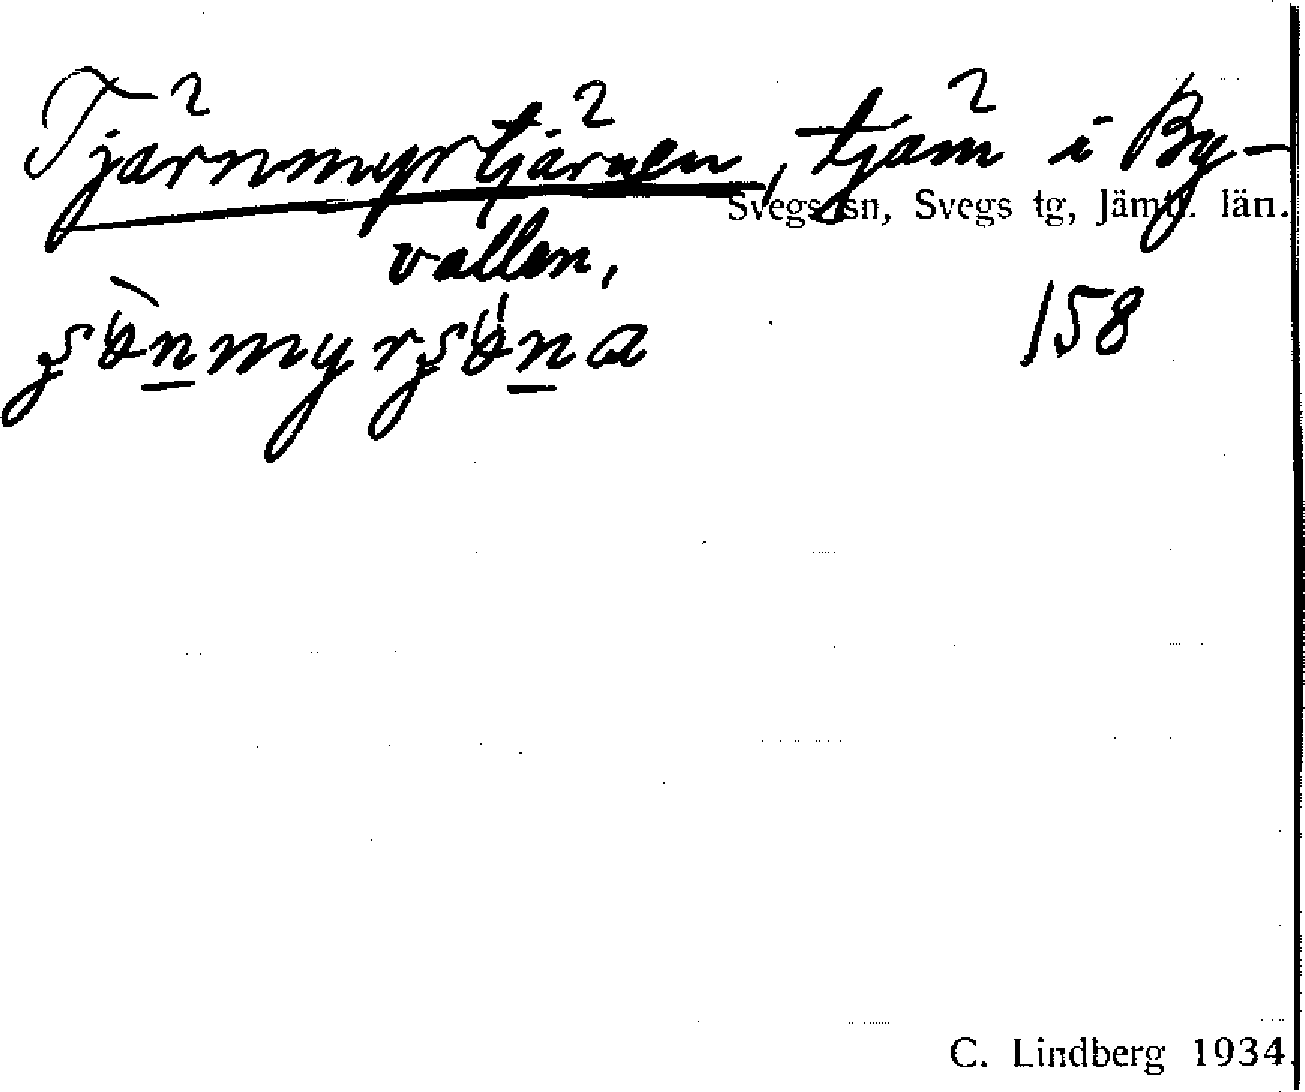 Tjärnmyrtjärnen, tjärn i By-
Svegs sn, Svegs tg, Jämtl. län.
vallen,
158
C. Lindberg 1934.